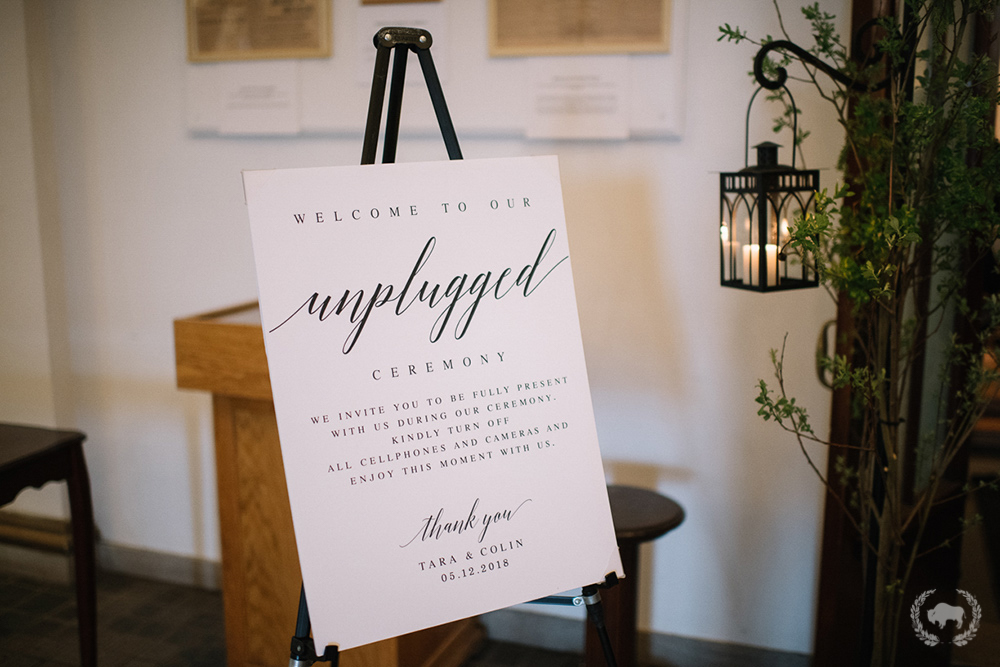 WELCOME TO OUR
unplugged
CEREMONY
WE INVITE YOU TO BE FULLY PRESENT
WITH US DURING OUR CEREMONY.
KINDLY TURN OFF
ALL CELLPHONES AND CAMERAS AND
ENJOY THIS MOMENT WITH US.
thank you
TARA & COLIN
05.12.2018